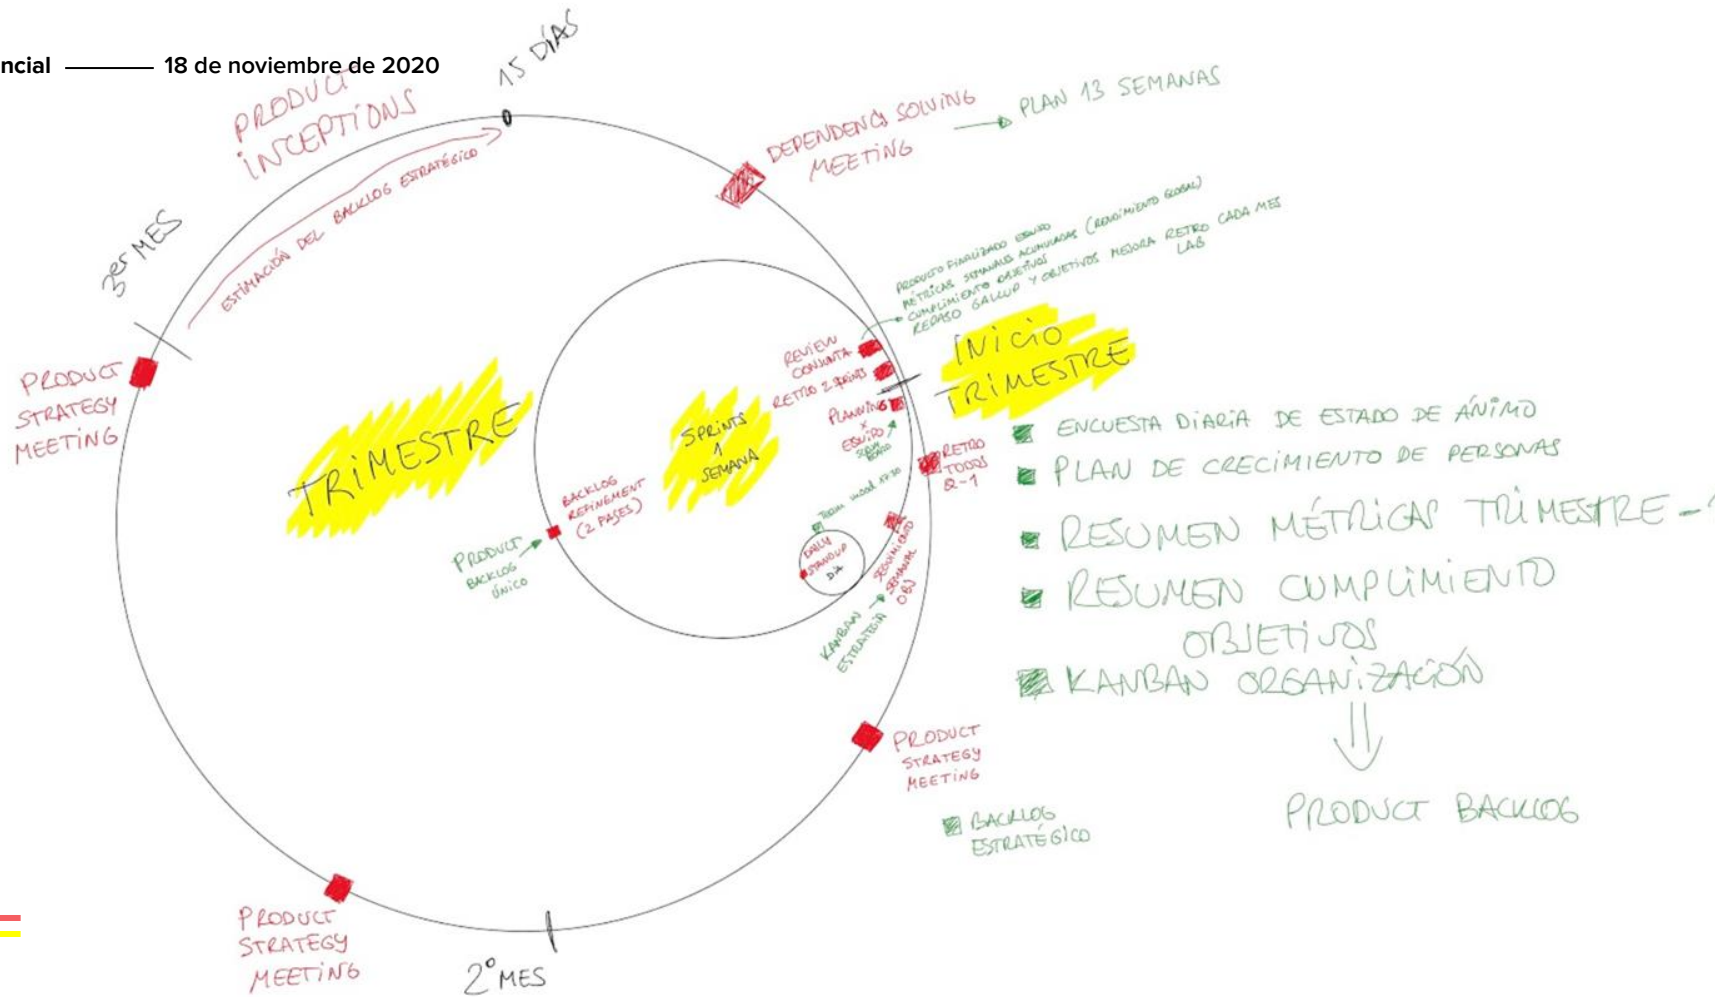 ncial
18 de noviembre de 2020
15 DÍAS
PRODUCT
INCEPTIONS
ESTIMACIÓN DEL BACKLOG ESTRATÉGICO
3er MES
DEPENDENCY SOLVING
MEETING
PLAN 13 SEMANAS
PRODUCTO FINALIZADO EQUIPO
MÉTRICAS SEMANALES ACUMULADAS (RENDIMIENTO GLOBAL)
CUMPLIMIENTO OBJETIVOS
REPASO GALLUP Y OBJETIVOS MEJORA RETRO CADA MES
LAB
INICIO
TRIMESTRE
REVIEW
CONJUNTA
RETRO 2 SPRINTS
PLANNING
x
EQUIPO
RETRO
TODOS
Q-1
PRODUCT
STRATEGY
MEETING
TRIMESTRE
SPRINTS
1
SEMANA
BACKLOG
REFINEMENT
(2 FASES)
PRODUCT
BACKLOG
ÚNICO
Team mood
DAILY
STANDUP
DÍA
SEGUIMIENTO
SEMANAL
OBJ
KANBAN
ESTRATEGIA
ENCUESTA DIARIA DE ESTADO DE ÁNIMO
PLAN DE CRECIMIENTO DE PERSONAS
RESUMEN MÉTRICAS TRIMESTRE
RESUMEN CUMPLIMIENTO
OBJETIVOS
KANBAN ORGANIZACIÓN
PRODUCT BACKLOG
PRODUCT
STRATEGY
MEETING
BACKLOG
ESTRATÉGICO
PRODUCT
STRATEGY
MEETING
2º MES